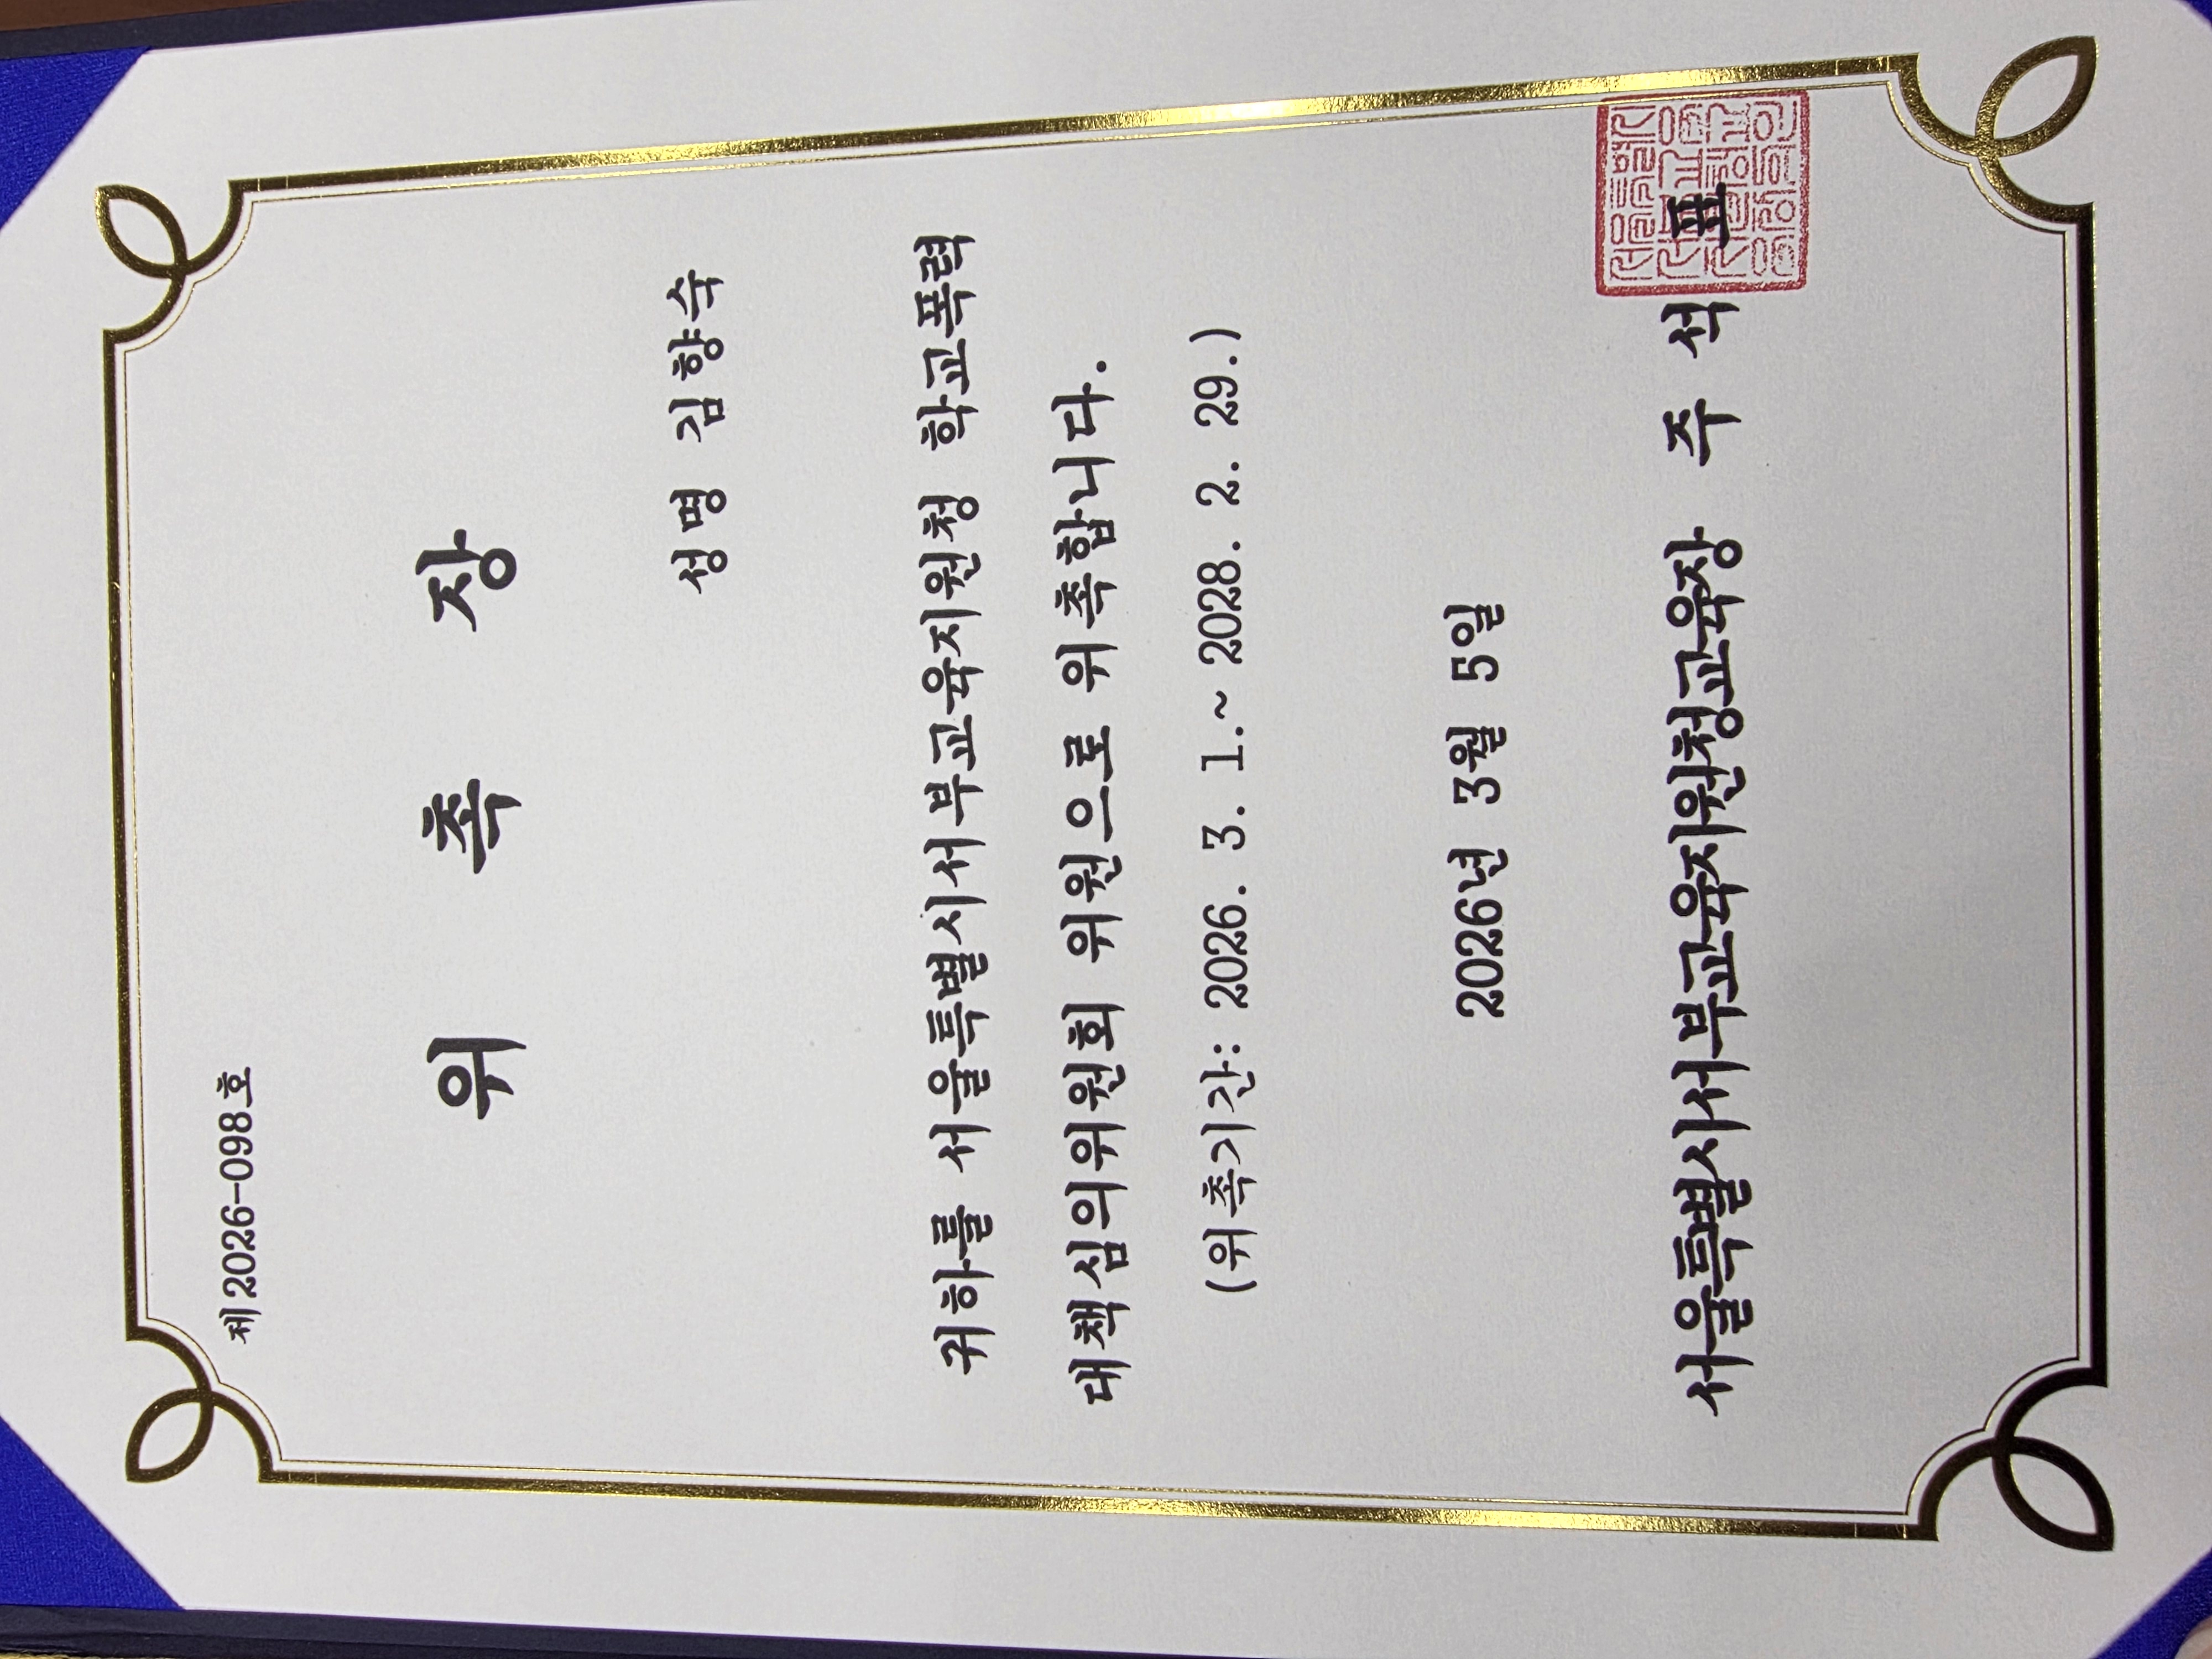 제2026-098호
위 촉 장
성명 김향숙
귀하를 서울특별시서부교육지원청 학교폭력
대책심의위원회 위원으로 위촉합니다.
(위촉기간: 2026. 3. 1.~ 2028. 2. 29.)
2026년 3월 5일
서울특별시서부교육지원청교육장 주 석 표